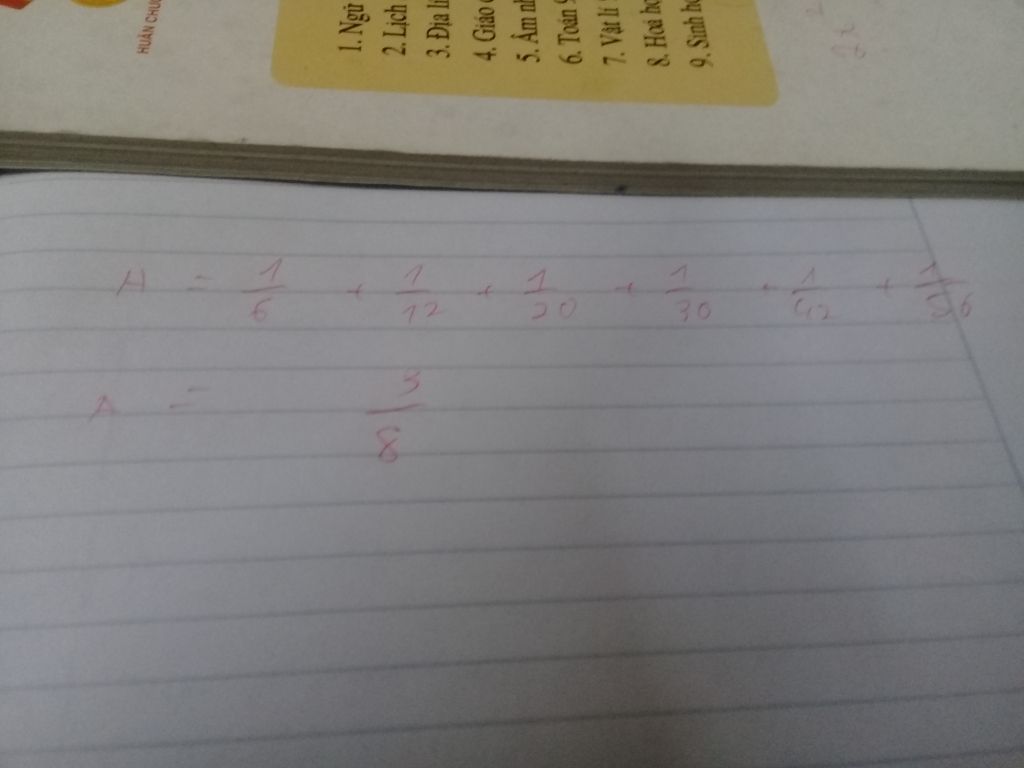 HUÂN CHƯƠ
1. Ngữ
2. Lịch
3. Địa lí
4. Giáo
5. Âm nh
6. Toán 9
7. Vật lí
8. Hoá họ
9. Sinh họ
A = 1/6 + 1/12 + 1/20 + 1/30 + 1/42 + 1/56
A = 3/8